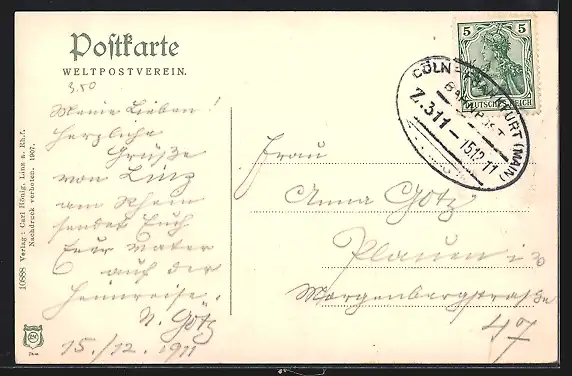 Postkarte
WELTPOSTVEREIN.
3.50
Meine Lieben!
Herzliche
Grüße
von Linz
am Rhein
sendet Euch
Euer Vater
auf der
Heimreise.
N. Götz
15./12. 1911
10888 Verlag: Carl Hönig, Linz a. Rh.
Nachdruck verboten. 1907.
5 5
DEUTSCHES REICH
CÖLN - FRANKFURT (MAIN)
BAHNPOST
Z. 311 - 15.12.11
Frau
Anna Götz
Plauen i. V.
Morgenbergstraße
47